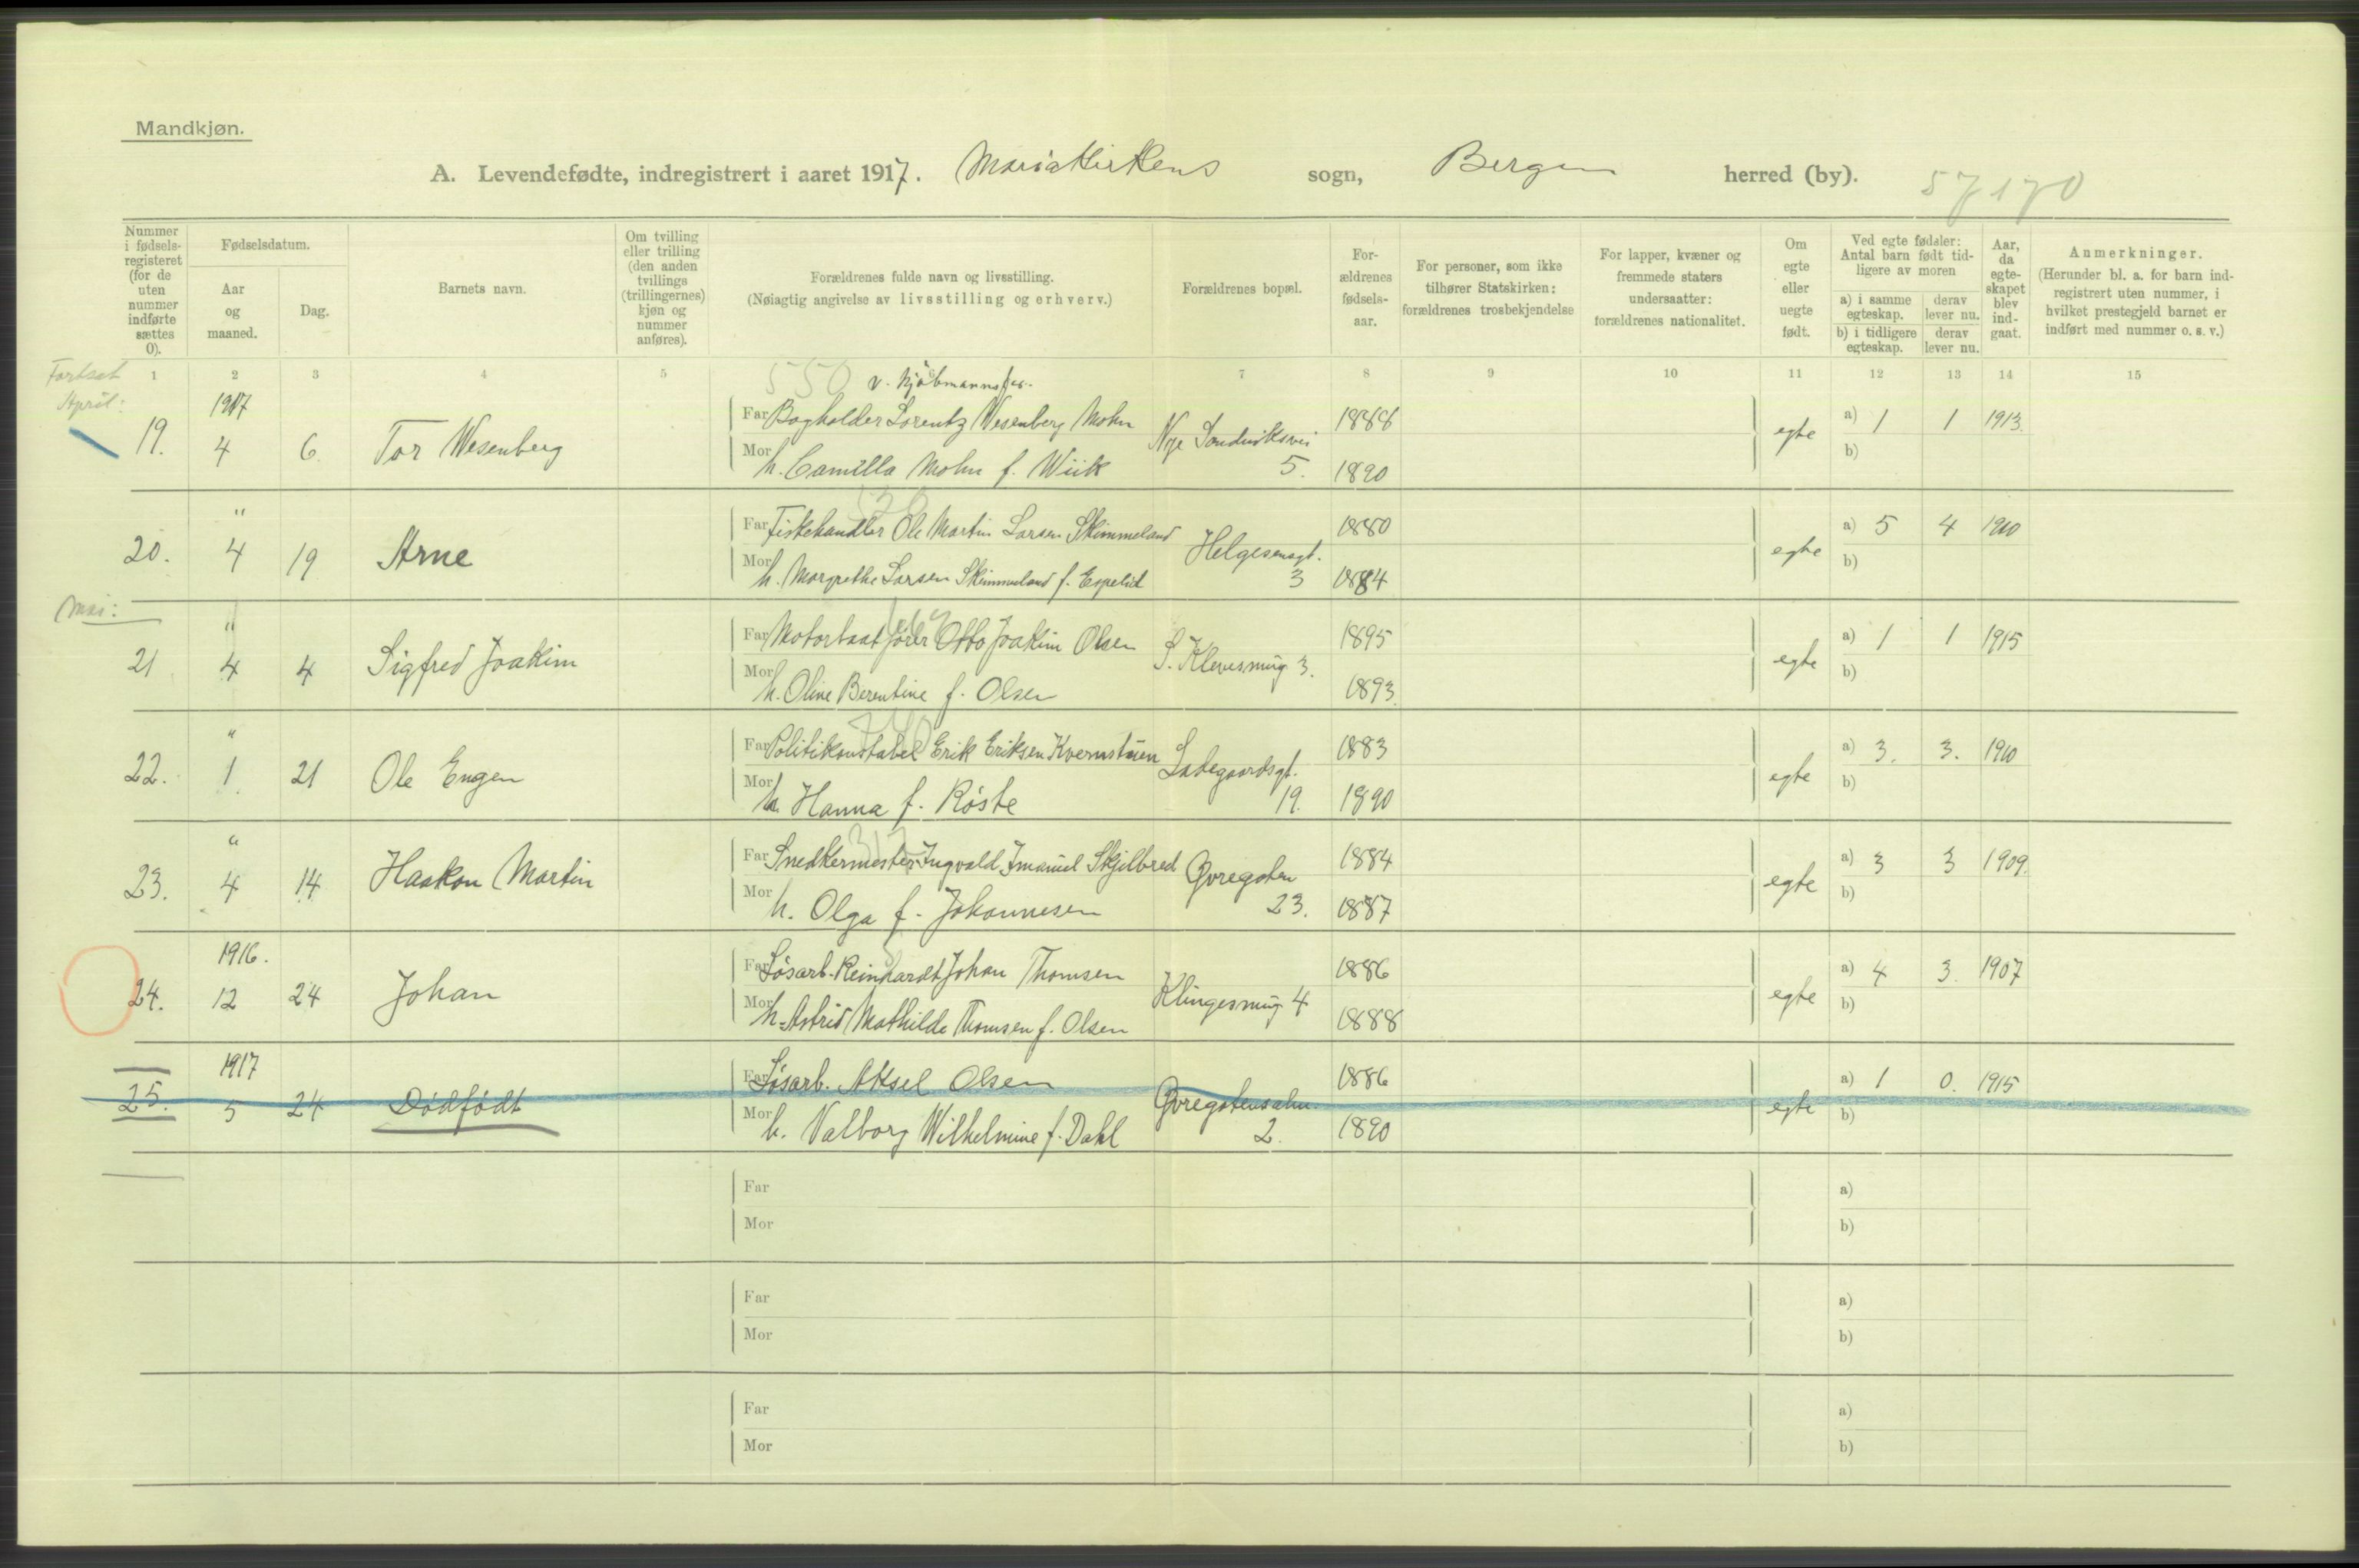 Mandkjøn.
A. Levendefødte, indregistrert i aaret 1917. Mariakirkens sogn, Bergen herred (by). 57170
Nummer i fødselsregisteret (for de uten nummer indførte sættes 0).
Fødselsdatum.
Aar og maaned.
Dag.
Barnets navn.
Om tvilling eller trilling (den anden tvillings (trillingernes) kjøn og nummer anføres).
Forældrenes fulde navn og livsstilling.
(Nøiagtig angivelse av livsstilling og erhverv.)
Forældrenes bopæl.
Forældrenes fødselsaar.
For personer, som ikke tilhører Statskirken: forældrenes trosbekjendelse
For lapper, kvæner og fremmede staters undersaatter: forældrenes nationalitet.
Om egte eller uegte født.
Ved egte fødsler: Antal barn født tidligere av moren
a) i samme egteskap.
derav lever nu.
b) i tidligere egteskap.
derav lever nu.
Aar, da egteskapet blev indgaat.
Anmerkninger.
(Herunder bl. a. for barn indregistrert uten nummer, i hvilket prestegjeld barnet er indført med nummer o. s. v.)
1 2 3 4 5 6 7 8 9 10 11 12 13 14 15
Fortsat
April:
550 v. Kjöbmannsfor.
1917
19. 4 6. Tor Wesenberg
Far Bogholder Lorentz Wesenberg Mohn Nye Sandviksvei 1888
Mor h. Camilla Mohn f. Wiik 5. 1890
egte a) 1 1 1913.
b)
"
20. 4 19 Arne
Far Fiskehandler Ole Martin Larsen Skimmeland Helgesensgt. 1880
Mor h. Margrethe Larsen Skimmeland f. Espelid 3 1884
egte a) 5 4 1910
b)
Mai:
"
21 4 4 Sigfred Joakim
Far Motorbaatfører Otto Joakim Olsen S. Klevesmug 3. 1895
Mor h. Oline Berentine f. Olsen 1893.
egte a) 1 1 1915
b)
"
22. 1. 21 Ole Engen
Far Politikonstabel Erik Eriksen Kvernstuen Ladegaardsgt. 1883
Mor h. Hanna f. Röste 19. 1890
egte a) 3. 3. 1910
b)
"
23. 4 14 Haakon Martin
Far Snedkermester Ingvald Imanuel Skjelbred Øvregaten 1884
Mor h. Olga f. Johannesen 23. 1887
egte a) 3 3 1909.
b)
1916.
24. 12 24 Johan
Far Løsarb. Reinhardt Johan Thomsen Klingesmug 4 1886
Mor h. Astrid Mathilde Thomsen f. Olsen 1888
egte a) 4 3. 1907
b)
1917
25. 5 24 Dödfödt
Far Løsarb. Aksel Olsen 1886
Mor h. Valborg Wilhelmine f. Dahl 2. 1890
egte a) 1 0. 1915
b)
Far a)
Mor b)
Far a)
Mor b)
Far a)
Mor b)